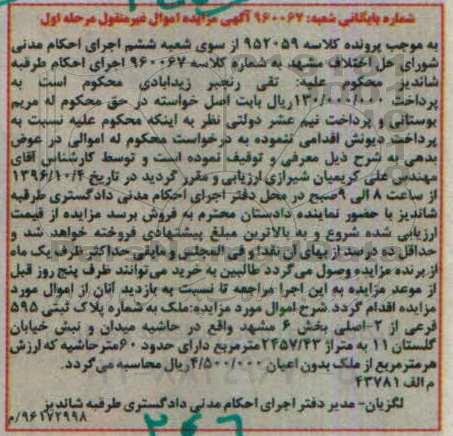 شماره بایگانی شعبه: ۹۶۰۰۶۷ آگهی مزایده اموال غیرمنقول مرحله اول
به موجب پرونده کلاسه ۹۵۲۰۵۹ از سوی شعبه ششم اجرای احکام مدنی
شورای حل اختلاف مشهد به شماره کلاسه ۹۶۰۰۶۷ اجرای احکام طرقبه
شاندیز محکوم علیه: تقی رنجبر زیدابادی محکوم است به
پرداخت ۱۳۰/۰۰۰/۰۰۰ریال بابت اصل خواسته در حق محکوم له مریم
بوستانی و پرداخت نیم عشر دولتی نظر به اینکه محکوم علیه نسبت به
پرداخت دیونش اقدامی ننموده به درخواست محکوم له اموالی در عوض
بدهی به شرح ذیل معرفی و توقیف نموده است و توسط کارشناس آقای
مهندس علی کریمیان شیرازی ارزیابی و مقرر گردید در تاریخ ۱۳۹۶/۱۰/۴
از ساعت ۸ الی ۹صبح در محل دفتر اجرای احکام مدنی دادگستری طرقبه
شاندیز با حضور نماینده دادستان محترم به فروش برسد مزایده از قیمت
ارزیابی شده شروع و به بالاترین مبلغ پیشنهادی فروخته خواهد شد و
حداقل ده درصد از بهای آن نقدا و فی المجلس و مابقی حداکثر ظرف یک ماه
از برنده مزایده وصول می‌گردد طالبین به خرید می‌توانند ظرف پنج روز قبل
از موعد مزایده به این اجرا مراجعه تا نسبت به بازدید آنان از اموال مورد
مزایده اقدام گردد.شرح اموال مورد مزایده:ملک به شماره پلاک ثبتی ۵۹۵
فرعی از ۲-اصلی بخش ۶ مشهد واقع در حاشیه میدان و نبش خیابان
گلستان ۱۱ به متراژ ۲۴۵۷/۴۳مترمربع دارای حدود ۶۰مترحاشیه که ارزش
هرمترمربع از ملک بدون اعیان ۴/۵۰۰/۰۰۰ریال محاسبه می‌گردد.
م الف ۴۳۷۸۱
لگزیان- مدیر دفتر اجرای احکام مدنی دادگستری طرقبه شاندیز
۹۶۱۷۲۹۹۸/م